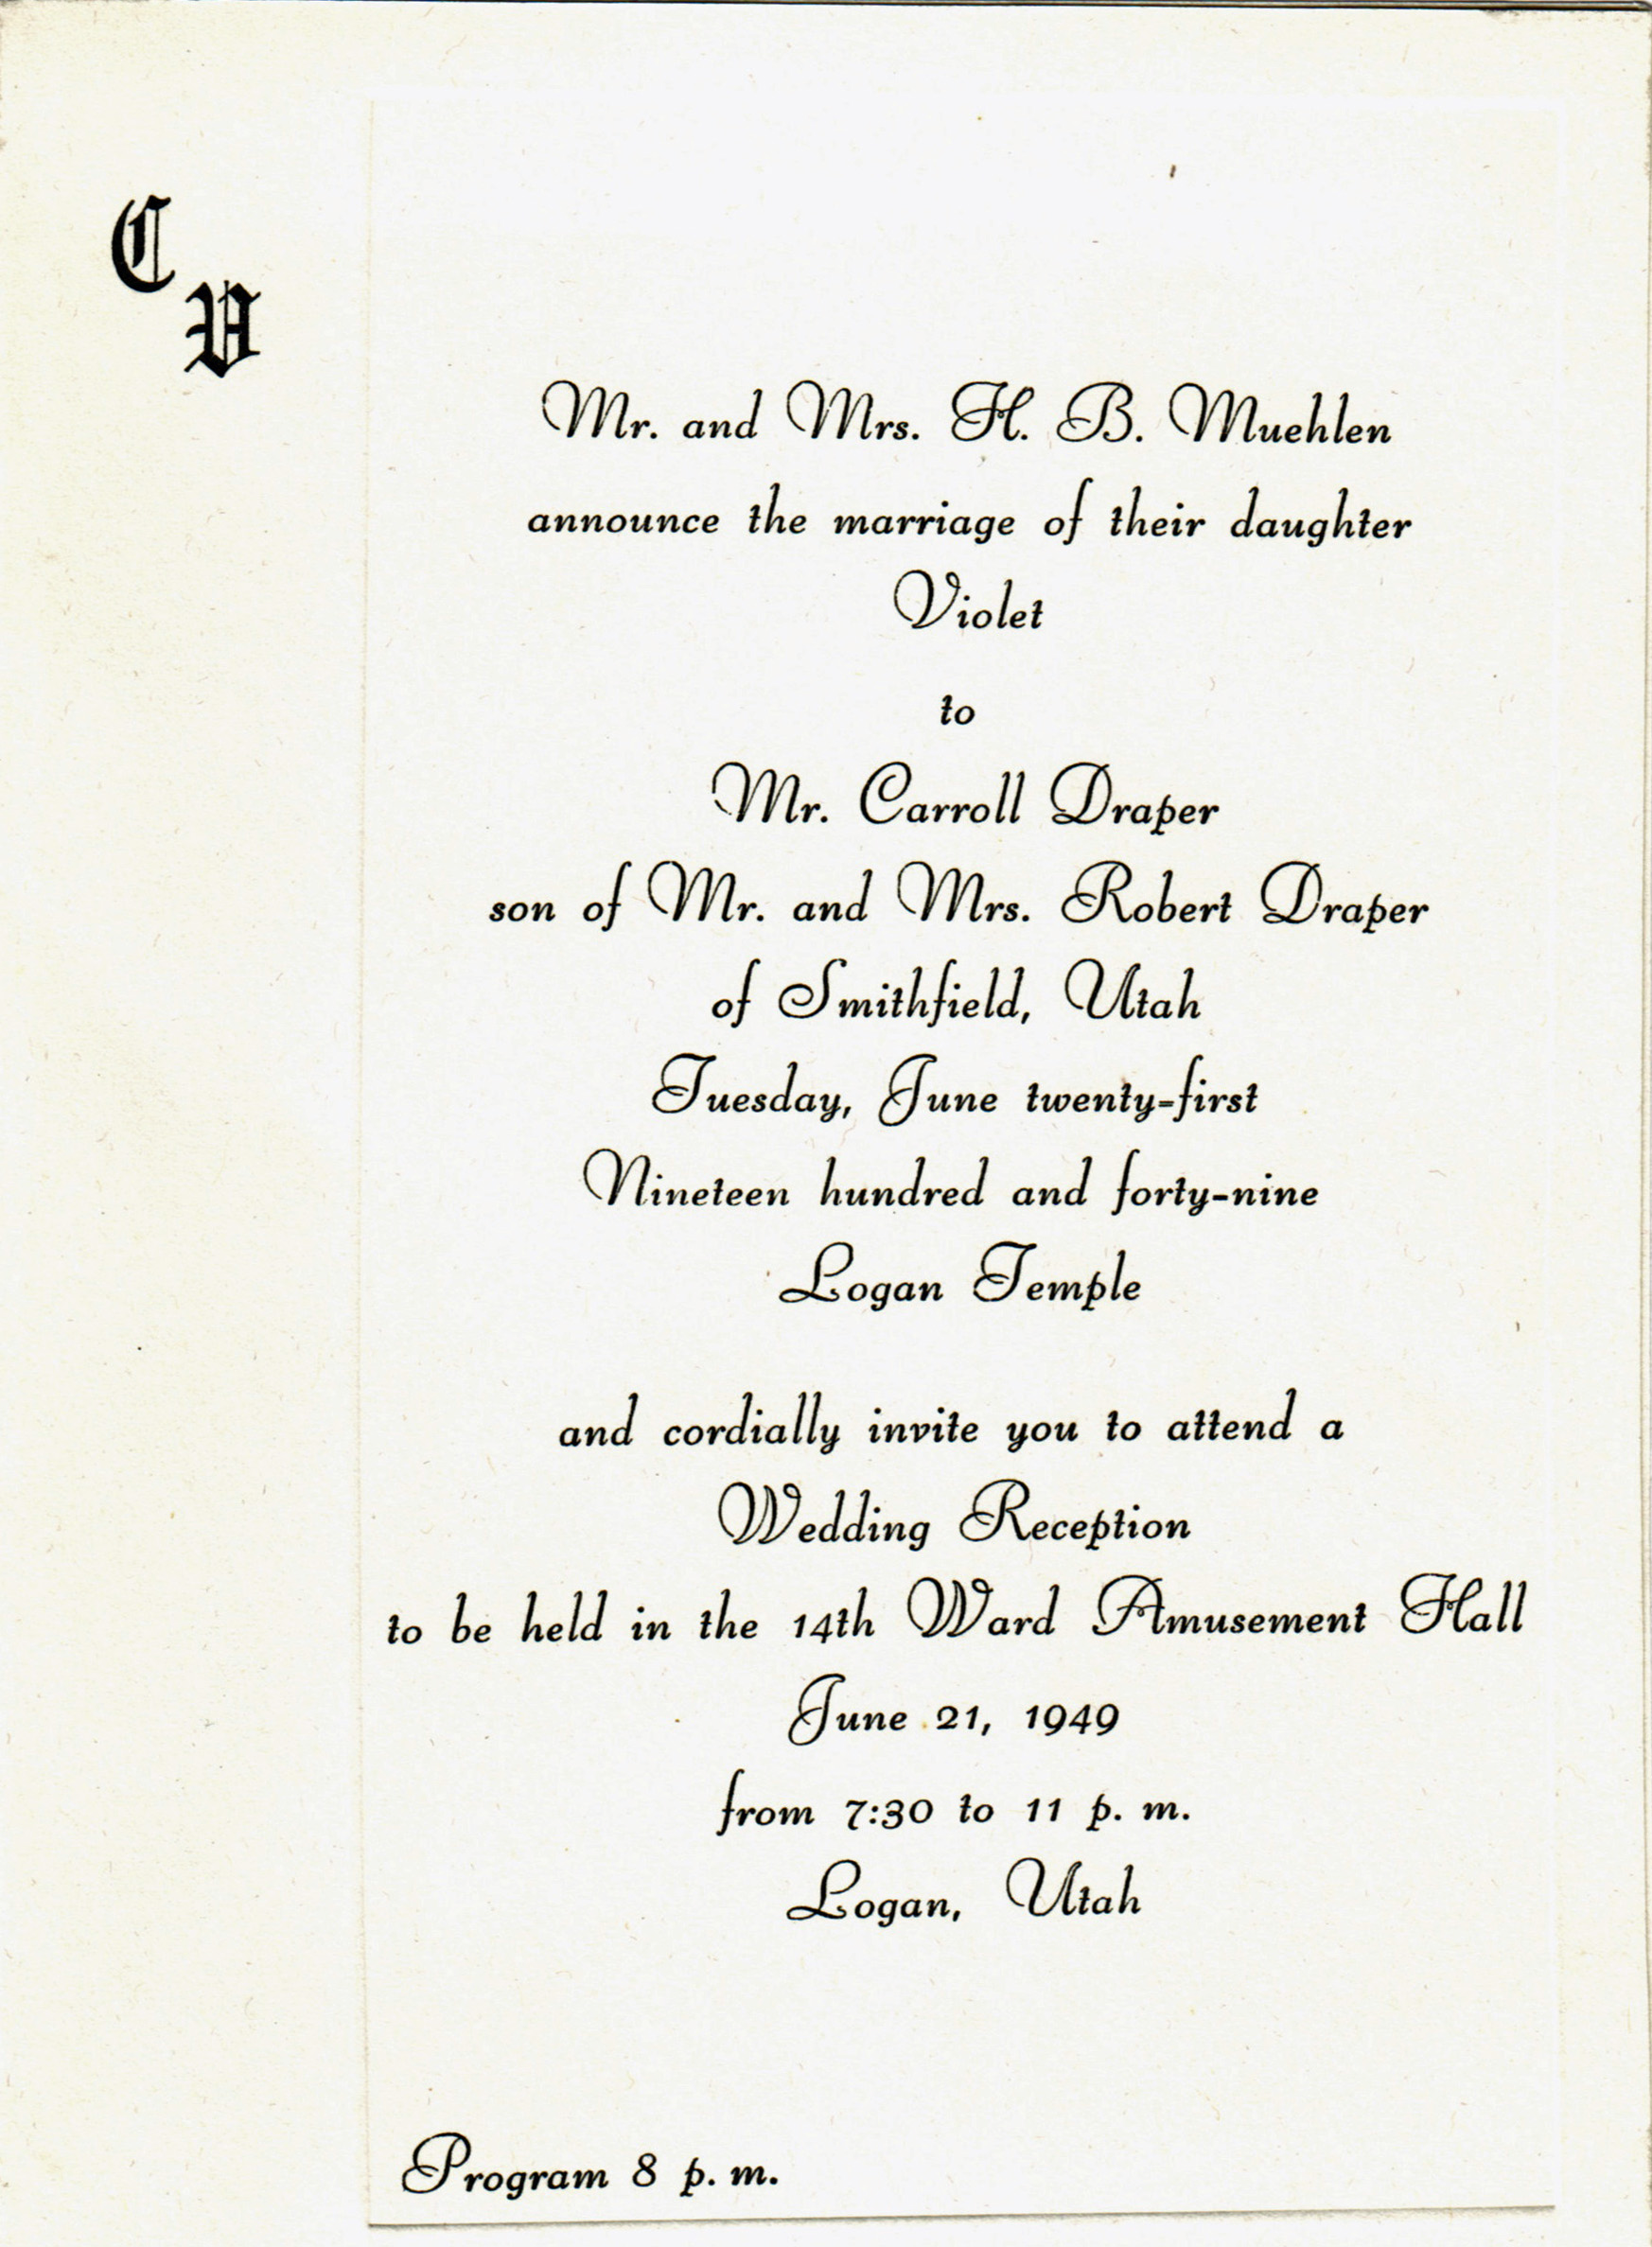 C
V
Mr. and Mrs. H. B. Muehlen
announce the marriage of their daughter
Violet
to
Mr. Carroll Draper
son of Mr. and Mrs. Robert Draper
of Smithfield, Utah
Tuesday, June twenty-first
Nineteen hundred and forty-nine
Logan Temple
and cordially invite you to attend a
Wedding Reception
to be held in the 14th Ward Amusement Hall
June 21, 1949
from 7:30 to 11 p. m.
Logan, Utah
Program 8 p. m.